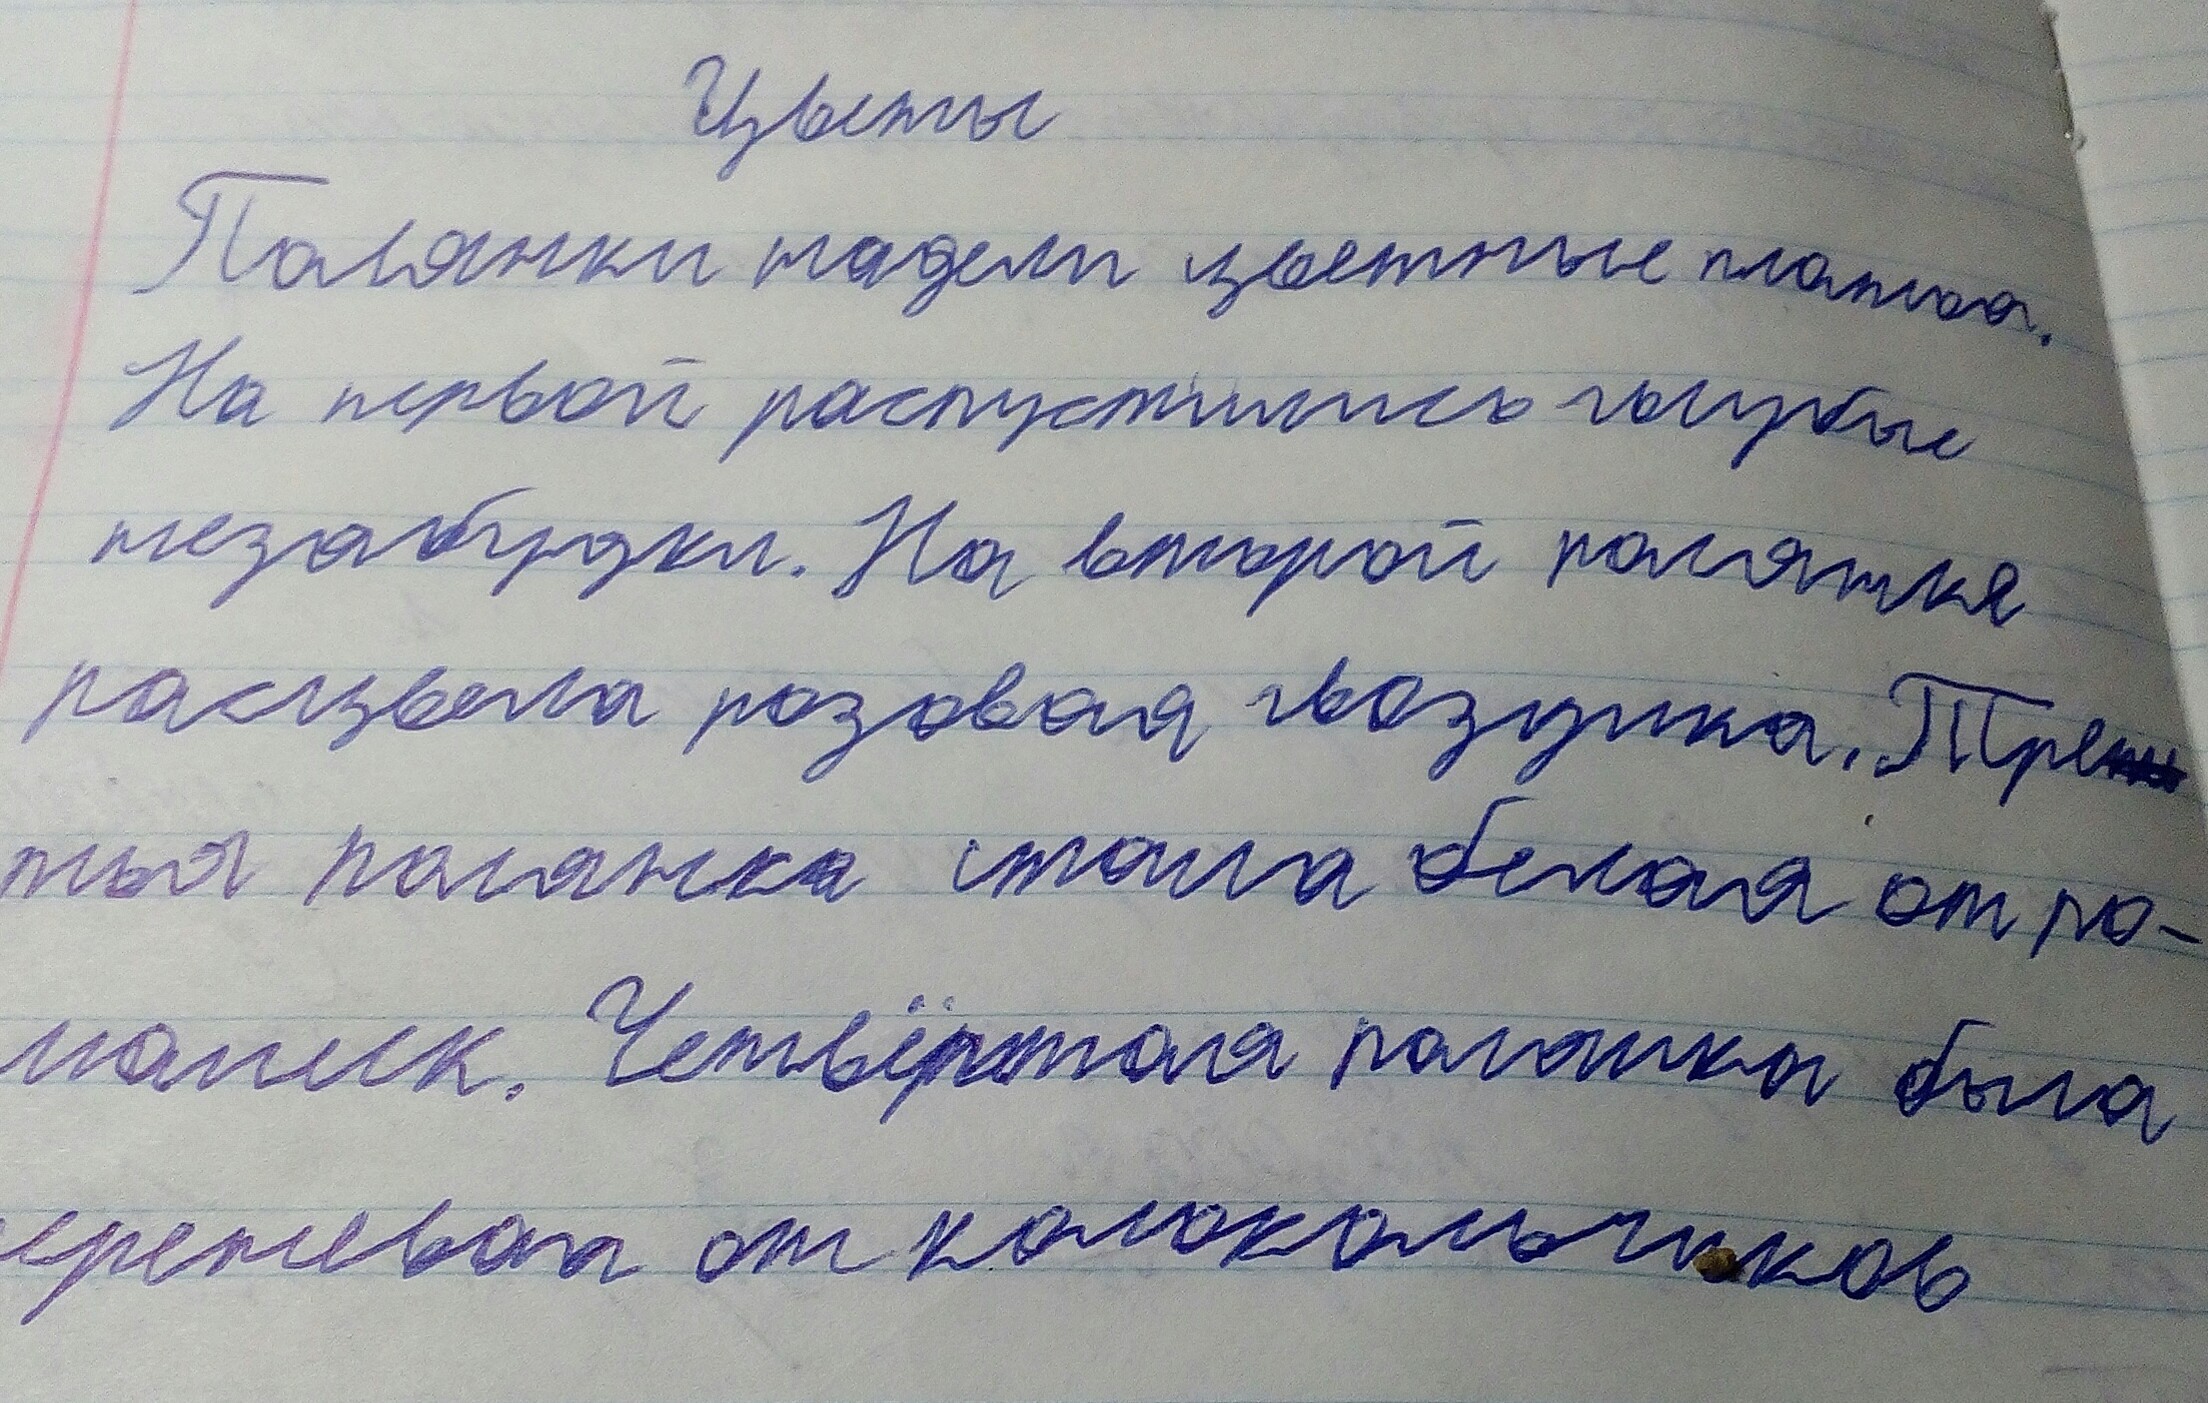 Цветы
Полянки надели цветные платья.
На первой распустились голубые
незабудки. На второй полянке
расцвела розовая гвоздика. Тре
тья полянка стала белая от ро-
машек. Четвёртая полянка была
иреневая от колокольчиков